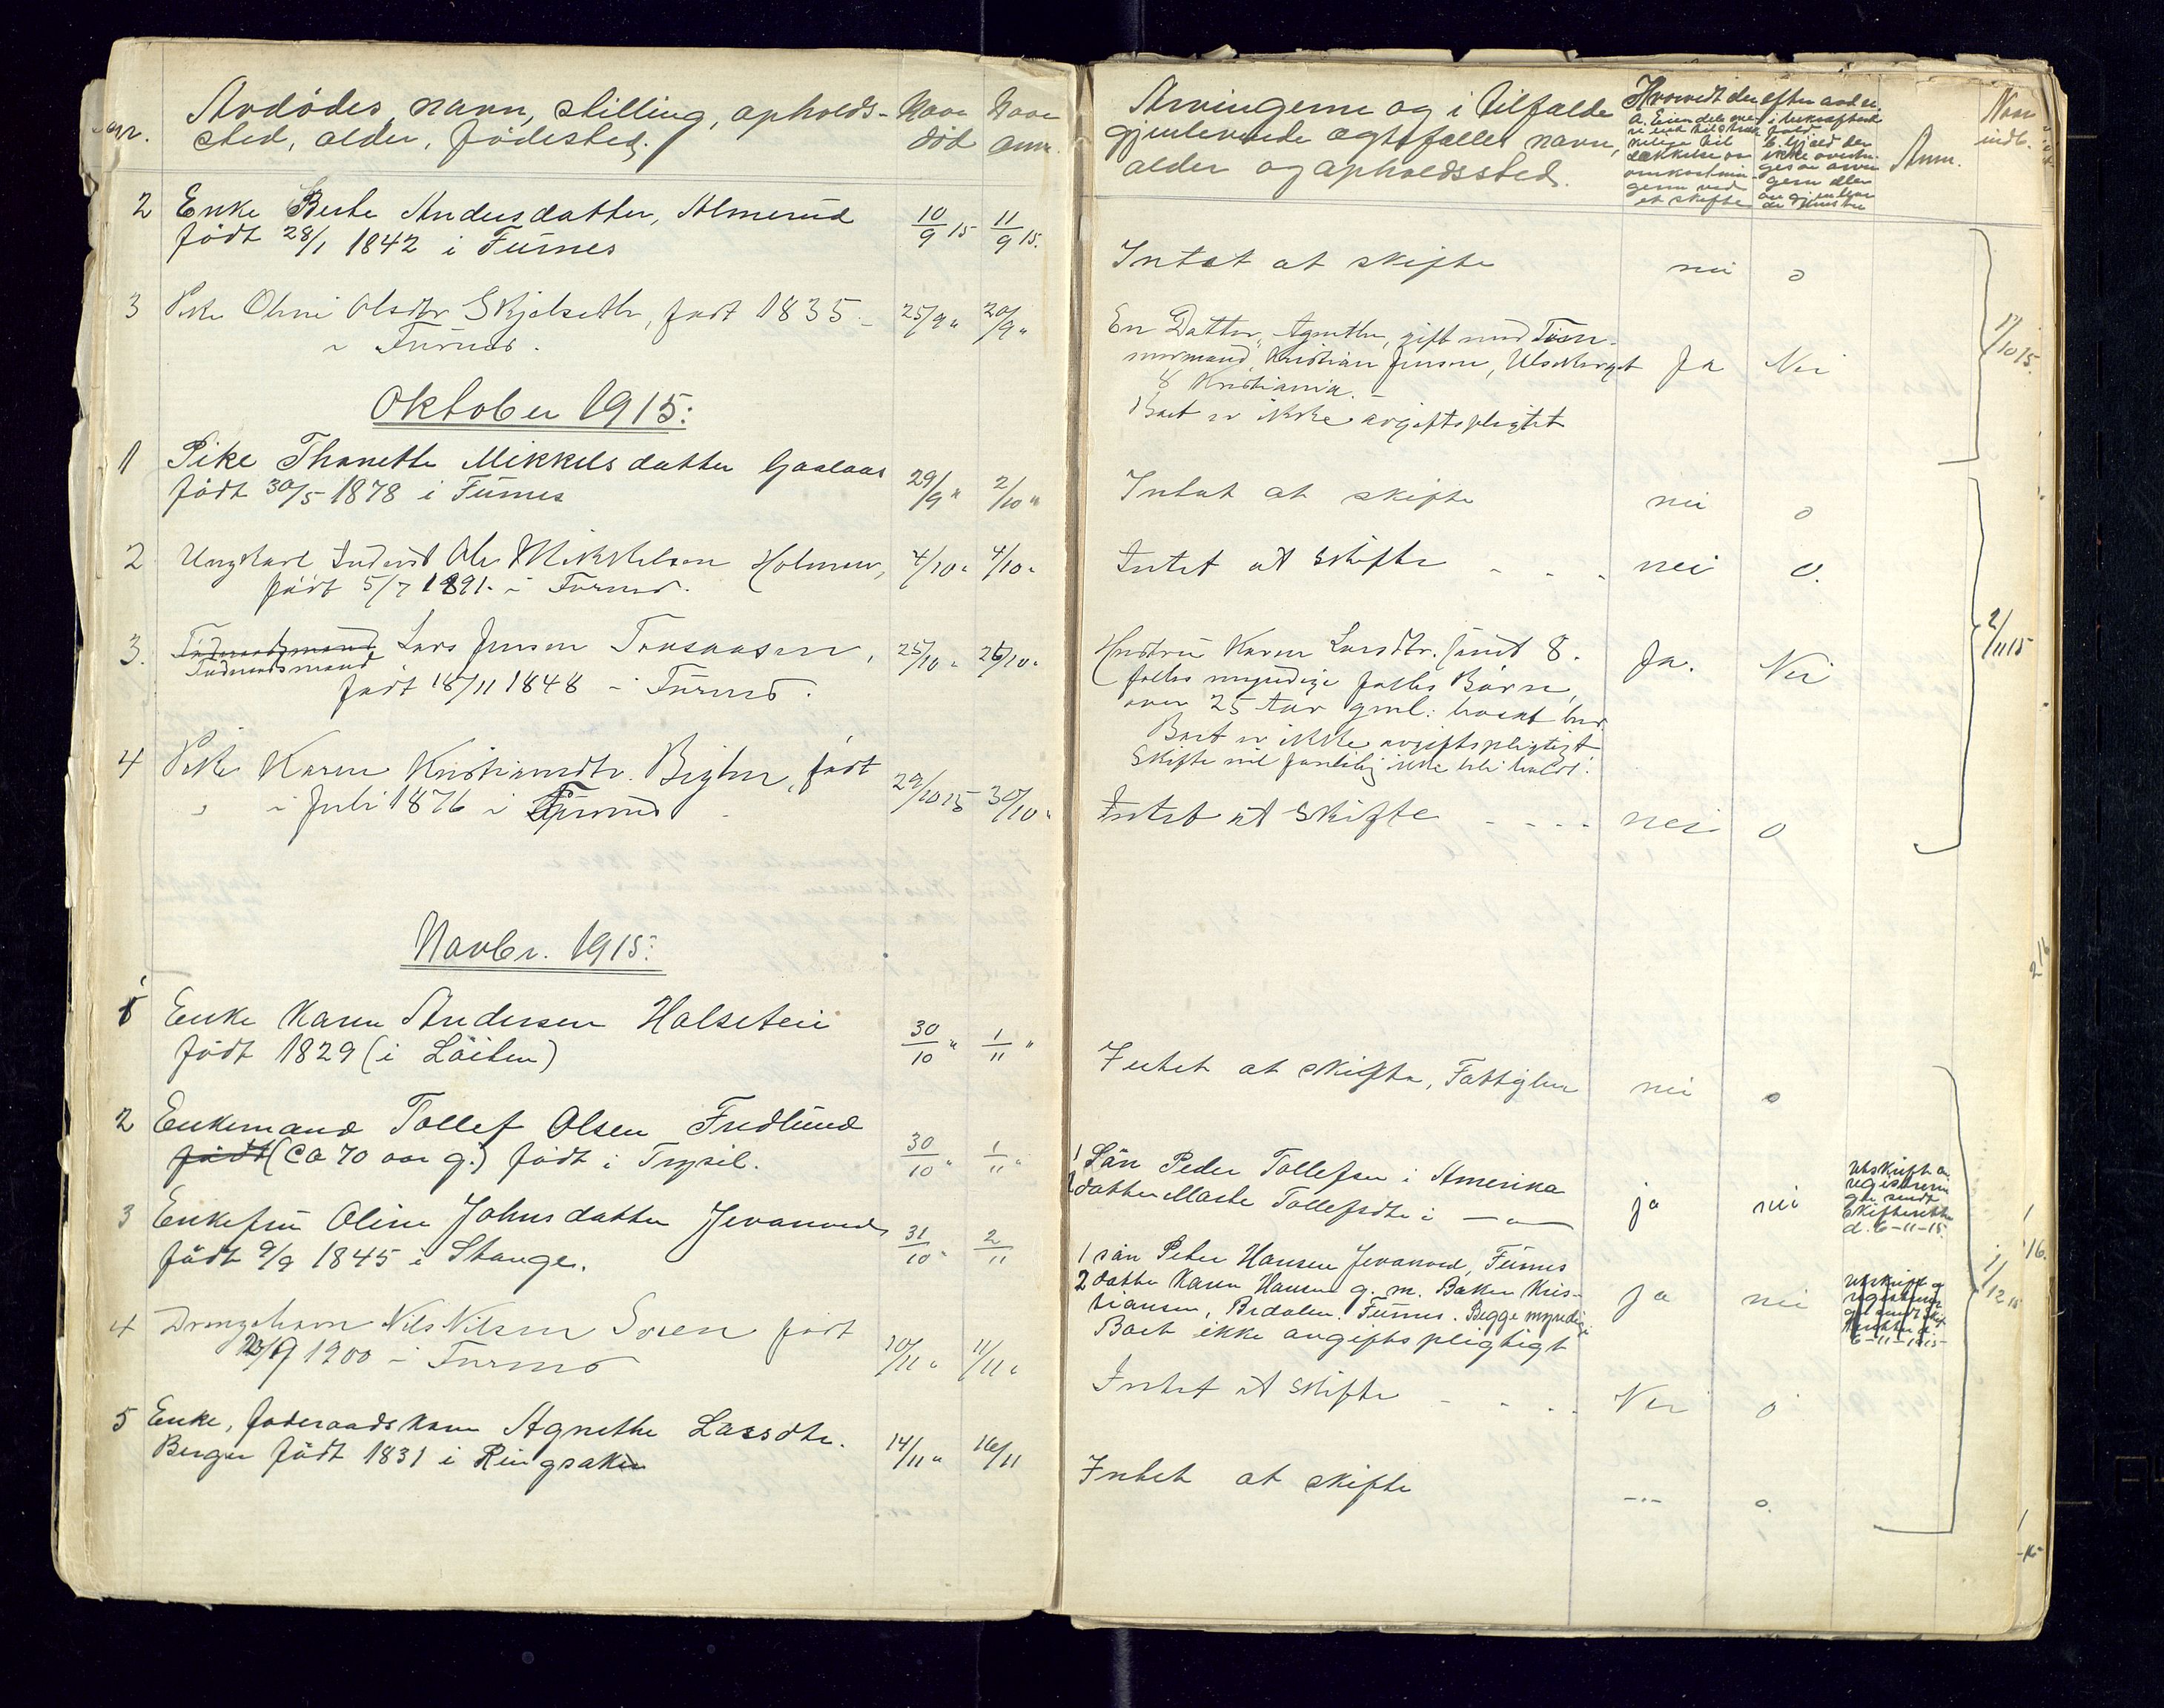 nr. Avdödes navn, stilling, opholds-
sted, alder, födested. Naar död Naar anm.
2 Enke Berte Andersdatter, Almerud 10/9 15 11/9 15.
födt 28/1 1842 i Furnes
3 Pike Oline Olsdtr. Skjelseth, født 1835 25/9 " /9 "
i Furnes.
Oktober 1915:
1 Pike Thonette Mikkelsdatter Gaalaas 29/9 " 2/10 "
födt 30/5 1878 i Furnes
2 Ungkarl Inderst Ole Mikkelsen Holmen, 4/10 " 4/10 "
født 5/7 1891 i Furnes.
3. Föderaadsmand Lars Jensen, 25/10 " 26/10 "
Föderaadsmand
født 18/11 1848 i Furnes.
4 Pike Karen Kristiansdtr., født 29/10 15 30/10 "
i Juli 1876 i Furnes
Novbr. 1915:
1 Enke Karen Andersen Halsetei 30/10 " 1/11 "
födt 1829 (i Löiten)
2 Enkemand Tollef Olsen Fredlund 30/10 " 1/11 "
födt (ca 70 aar g.) födt i Trysil.
3 Enkefru Oline Johnsdatter Jevanord 31/10 " 2/11
födt 9/9 1845 i Stange.
4 Drengebarn Nils Nilsen født 10/11 " 11/11 "
1900 i Furnes
5 Enke, föderaadskone Agnethe Larsdtr. 14/11 " 16/11
Berger födt 1831 i Ringsaker
Arvingerne og i tilfælde
gjenlevende ægtefælles navn,
alder og opholdssted.
Hvorvidt der efter avdöde
Anm.
Naar indb.
Intet at skifte nei o
En Datter, Agnethe, gift med
Kristian Jensen, Ja Nei
8 Kristiania.
Boet er ikke avgiftspligtit
17/10 15.
Intet at skifte nei o
Intet at skifte - - - nei o.
Hustru Karen Larsdtr. samt 8. Ja. Nei
fælles myndige fælles Børn,
over 25 Aar gml:
Boet er ikke avgiftspligtigt
Skifte vil ikke bli holdt.
Intet at skifte - - - - nei o
2/11 15
Intet at skifte, Fattiglem nei o
1 Sön Peder Tollefsen i Amerika
2 datter Marte Tollefsdtr i — " — ja nei
Utskrift av
registrerin
gen sendt
Skifteretten
d. 6-11-15.
1 sön Peter Hansen Jevanord, Furnes
2 datter Karen Hansen g. m. Baker Kris-
tiansen, Brdalen. Furnes. Begge myndige Ja nei
Boet ikke avgiftspligtigt
Utskrift av
registrerin
gen sendt Skif
teretten d.
6-11-1915
Intet at skifte - - - - Nei o
Intet at skifte -"- o.
1/12 15